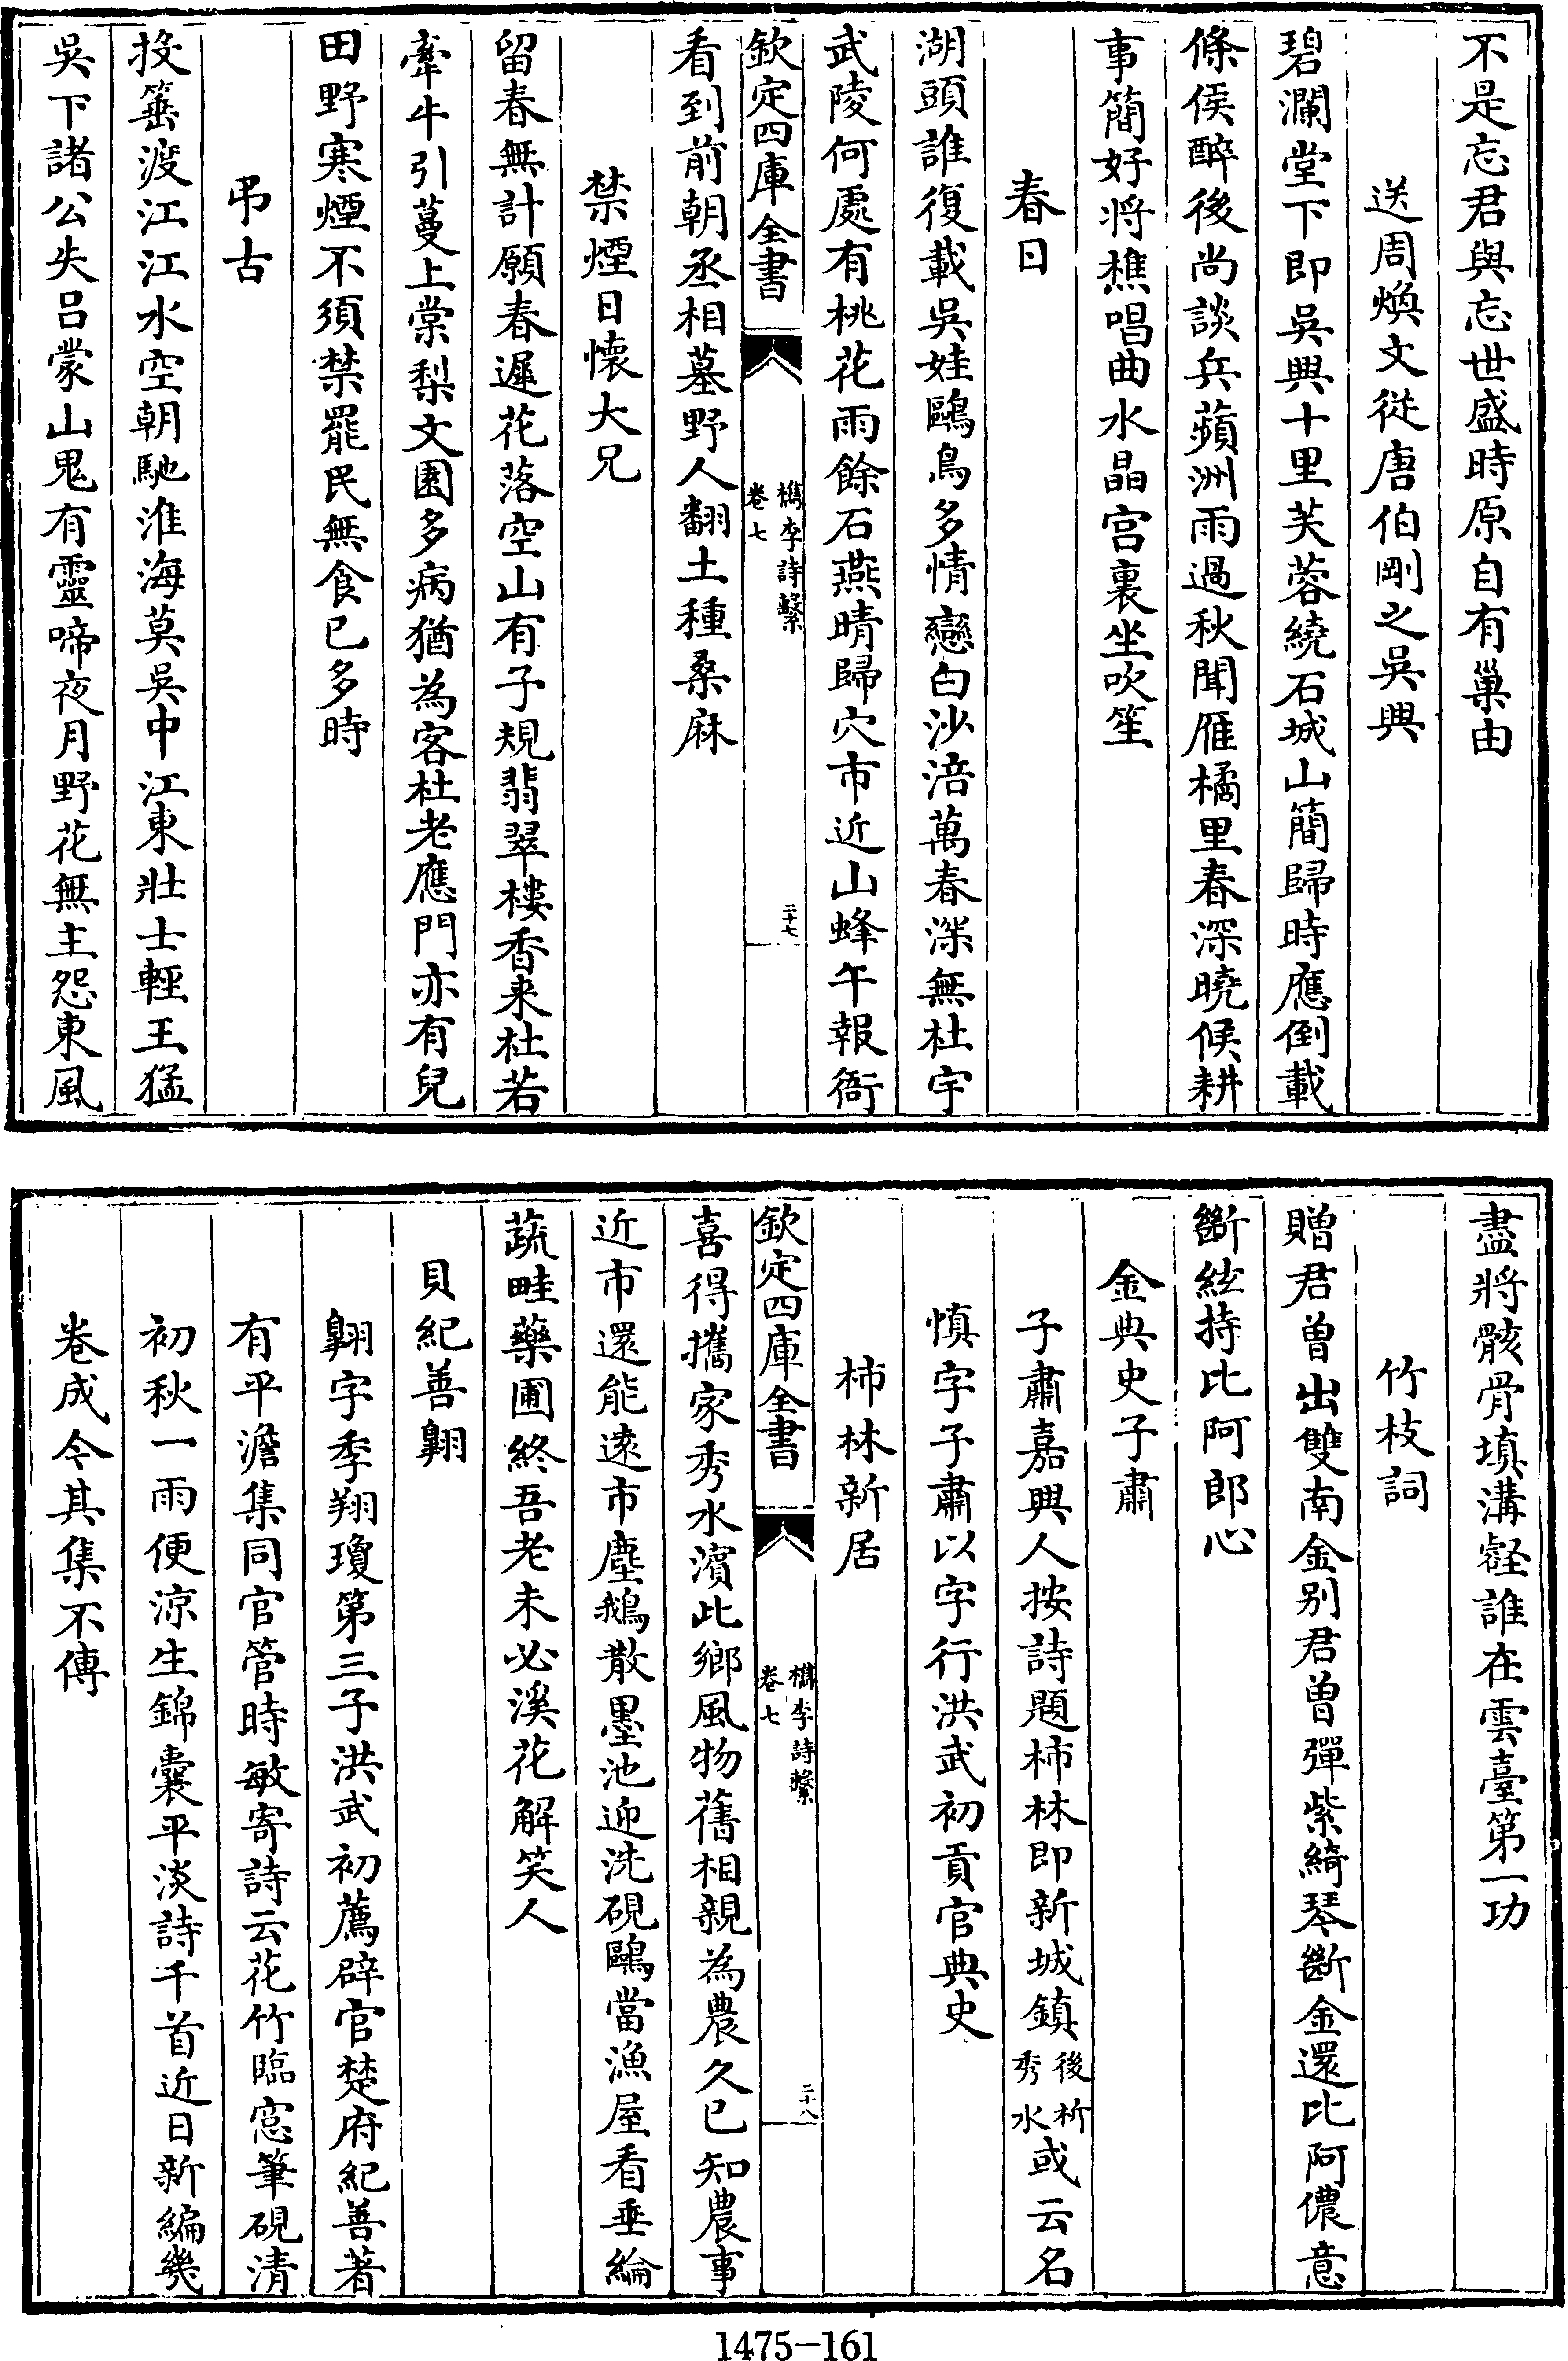 不是忘君與忘世盛時原自有巢由
送周煥文從唐伯剛之吳興
碧瀾堂下即吳興十里芙蓉繞石城山簡歸時應倒載
條侯醉後尚談兵蘋洲雨過秋聞雁橘里春深曉候耕
事簡好將樵唱曲水晶宮裏坐吹笙
春日
湖頭誰復載吳娃鷗鳥多情戀白沙涪萬春深無杜宇
武陵何處有桃花雨餘石燕晴歸穴市近山蜂午報衙
欽定四庫全書
檇李詩繫
卷七
二十七
看到前朝丞相墓野人翻土種桑麻
禁煙日懷大兄
留春無計願春遲花落空山有子規翡翠樓香来杜若
牽牛引蔓上棠梨文園多病猶為客杜老應門亦有兒
田野寒煙不須禁罷民無食已多時
弔古
投箠渡江江水空朝馳淮海莫吳中江東壯士輕王猛
吳下諸公失呂蒙山鬼有靈啼夜月野花無主怨東風
盡將骸骨填溝壑誰在雲臺第一功
竹枝詞
贈君曽出雙南金别君曽彈紫綺琴斷金還比阿儂意
斷絃持比阿郎心
金典史子肅
子肅嘉興人按詩題柿林即新城鎮後析秀水或云名
慎字子肅以字行洪武初貢官典史
柿林新居
欽定四庫全書
檇李詩繫
卷七
二十八
喜得攜家秀水濱此鄉風物舊相親為農久已知農事
近市還能遠市塵鵝散墨池迎洗硯鷗當漁屋看垂綸
蔬畦藥圃終吾老未必溪花解笑人
貝紀善翺
翺字季翔瓊第三子洪武初薦辟官楚府紀善著
有平澹集同官管時敏寄詩云花竹臨窓筆硯清
初秋一雨便涼生錦囊平淡詩千首近日新編幾
卷成今其集不傳
1475-161